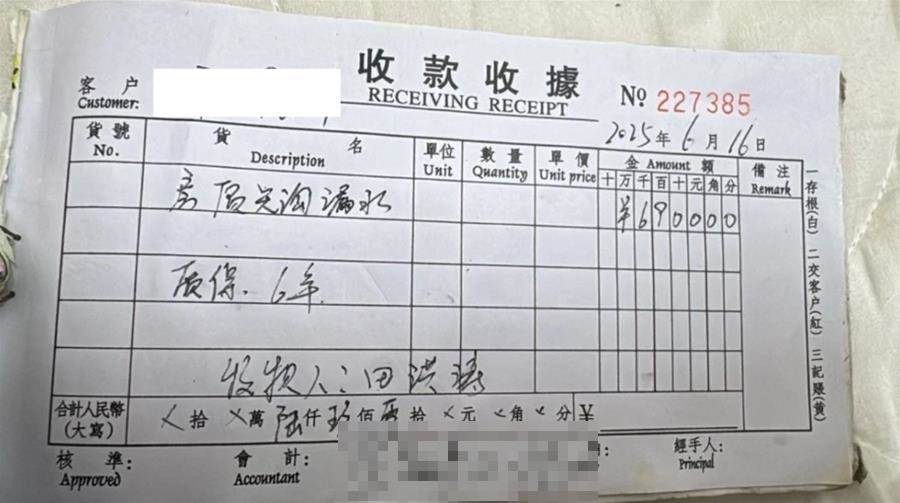 收款收據
RECEIVING RECEIPT
客户
Customer:
№ 227385
2025年6月16日
貨號 No.
貨名 Description
單位 Unit
數量 Quantity
單價 Unit price
金 Amount 額
備注 Remark
十万千百十元角分
漏水
¥690000
质保. 6年
收款人:田洪涛
合計人民幣(大寫)
拾 萬 陆仟玖佰 拾 元 角 分 ¥
核準: Approved
會計: Accountant
經手人: Principal
一存根(白) 二交客户(紅) 三記賬(黃)